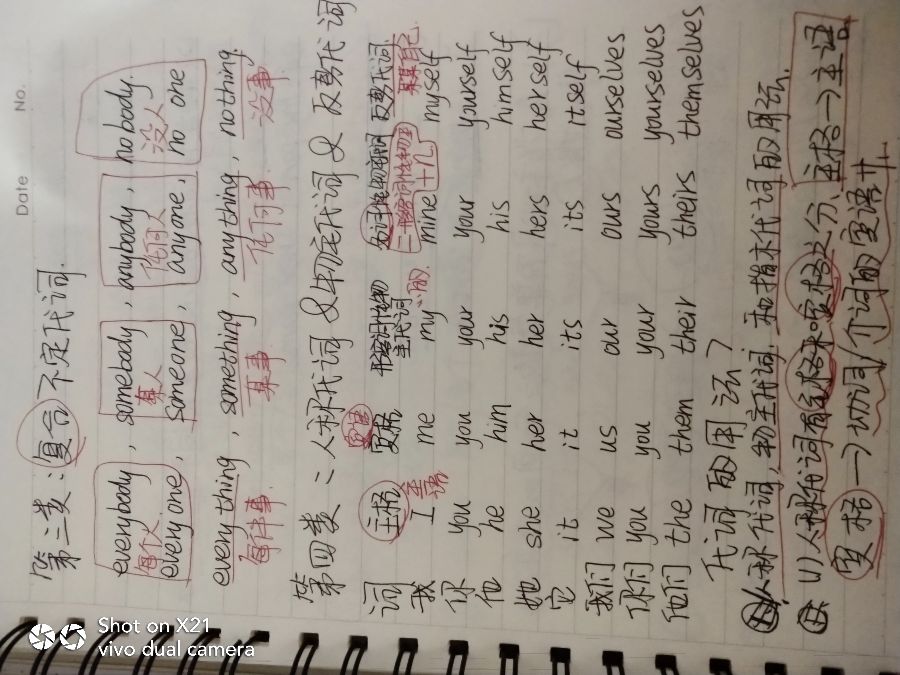 Date No.
第三类:复合不定代词.
everybody, somebody, anybody, nobody.
每个人 某人 任何人 没人
everyone, someone, anyone, no one
everything, something, anything, nothing.
每件事 某事 任何事 没事
第四类:人称代词 & 物主代词 & 反身代词
宾语
词 主格 宾格 形容词性物主代词 名词性物主代词 反身代词
主语 的 =形容词性物主 +n. 某某自己
我 I me my mine myself
你 you you your your yourself
他 he him his his himself
她 she her her hers herself
它 it it its its itself
我们 we us our ours ourselves
你们 you you your yours yourselves
他们 the them their theirs themselves
代词的用法?
人称代词,物主代词,和指示代词的用法.
(1)人称代词有主格和宾格之分、主格→主语.
宾格→动词/介词的宾语
Shot on X21
vivo dual camera